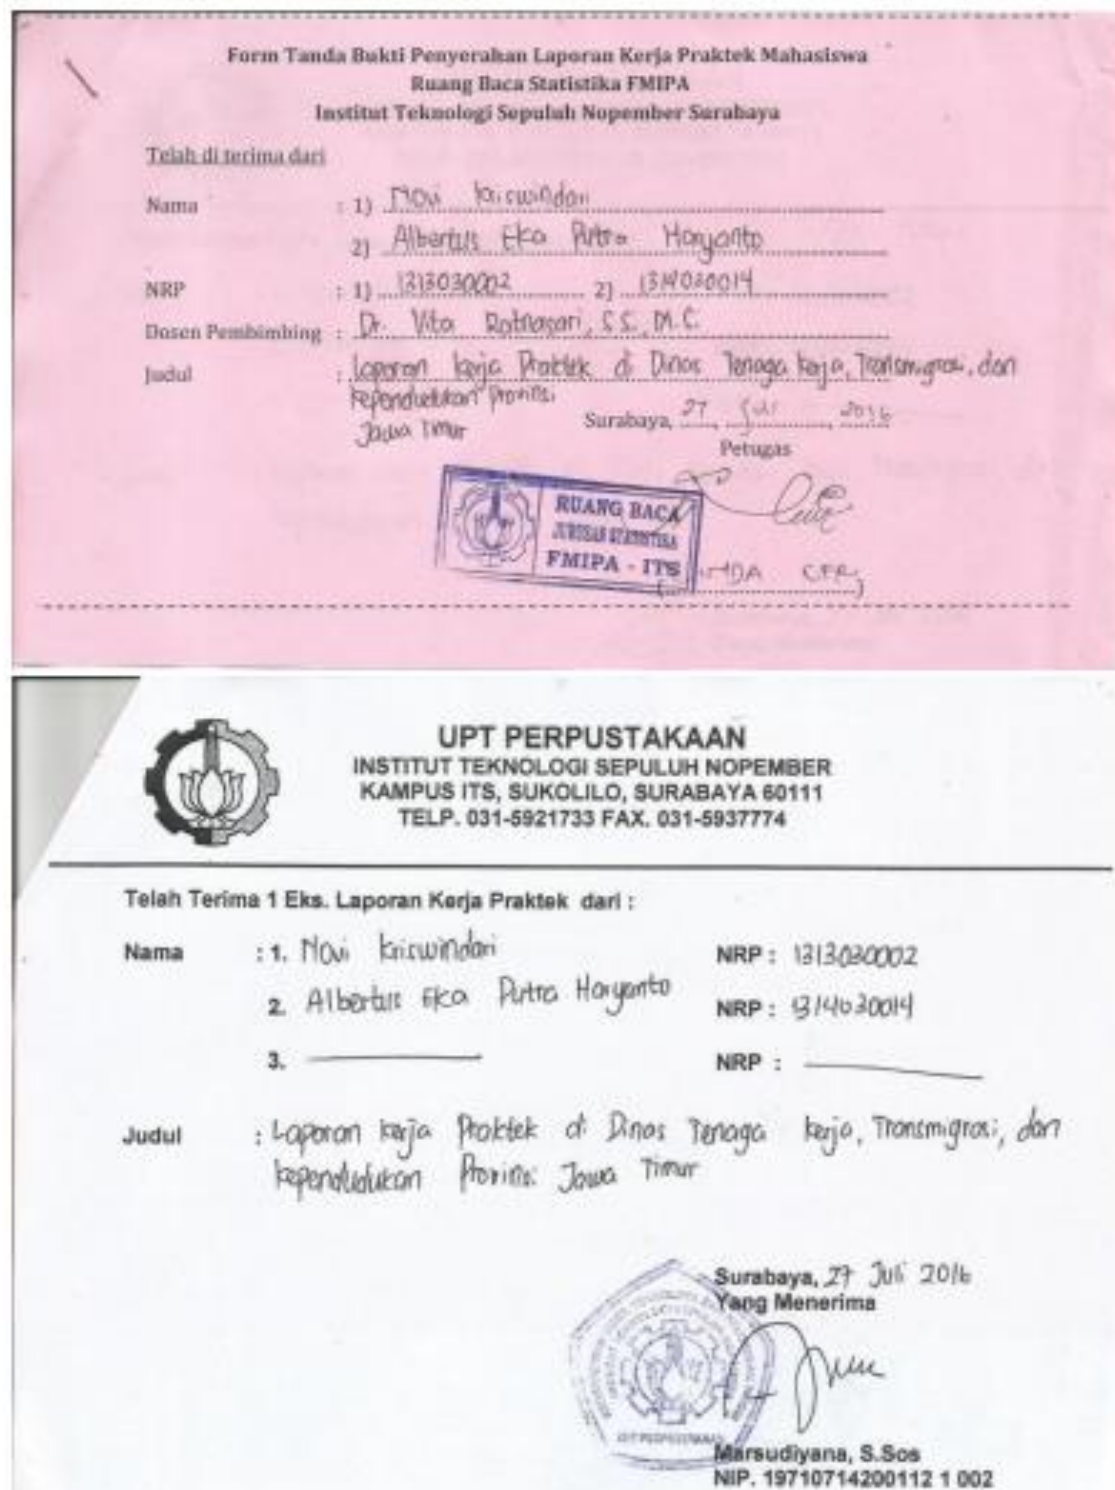 Form Tanda Bukti Penyerahan Laporan Kerja Praktek Mahasiswa
Ruang Baca Statistika FMIPA
Institut Teknologi Sepuluh Nopember Surabaya
Telah di terima dari
Nama : 1) Novi Kriswindari
2) Albertus Eka Putra Haryanto
NRP : 1) 1313030002 2) 1314030014
Dosen Pembimbing : Dr. Vita Ratnasari, S.S., M.S.
Judul : Laporan Kerja Praktek di Dinas Tenaga Kerja, Transmigrasi, dan
Kependudukan Provinsi
Jawa Timur
Surabaya, 27 Juli 2016
Petugas
RUANG BACA
JURUSAN STATISTIKA
FMIPA - ITS
UPT PERPUSTAKAAN
INSTITUT TEKNOLOGI SEPULUH NOPEMBER
KAMPUS ITS, SUKOLILO, SURABAYA 60111
TELP. 031-5921733 FAX. 031-5937774
Telah Terima 1 Eks. Laporan Kerja Praktek dari :
Nama : 1. Novi Kriswindari NRP : 1313030002
2. Albertus Eka Putra Haryanto NRP : 1314030014
3. NRP :
Judul : Laporan Kerja Praktek di Dinas Tenaga Kerja, Transmigrasi, dan
Kependudukan Provinsi Jawa Timur
Surabaya, 27 Juli 2016
Yang Menerima
UPT PERPUSTAKAAN
Marsudiyana, S.Sos
NIP. 19710714200112 1 002